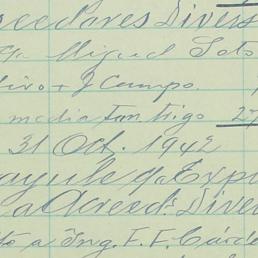 creedores Divers
Miguel Soto
J Campo.
media ton trigo 27
31 Oct. 1942
ayule Expo
a Acreed. Diver
a Ing. F. F. Cárde